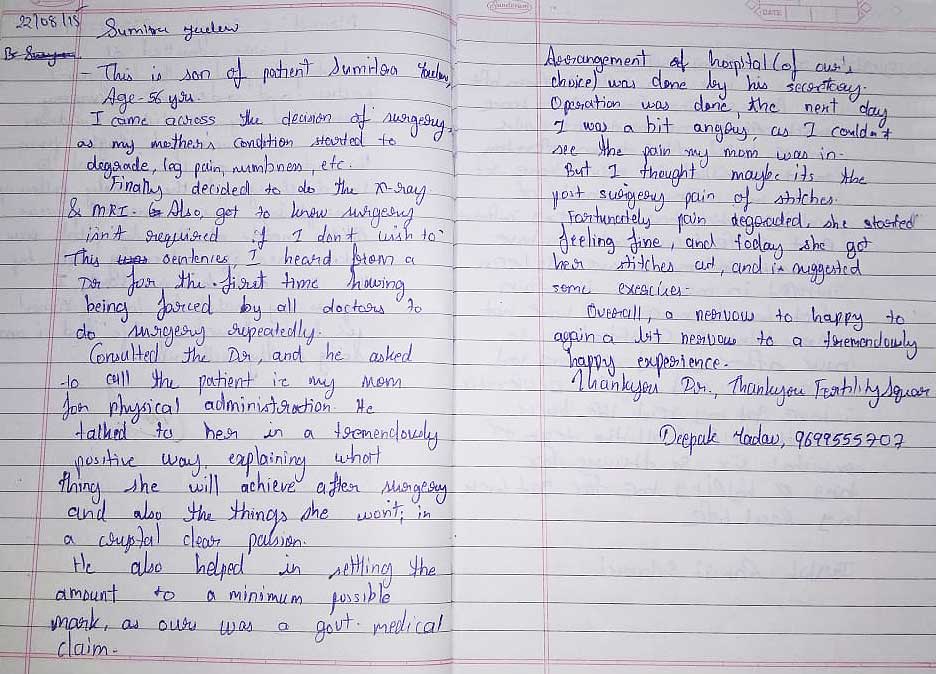 Sundaram
DATE
22/08/18
Sumitra Yadav
- This is son of patient Sumitra Yadav,
Age - 56 yrs.
I came across the decision of surgery,
as my mother's condition started to
degrade, leg pain, numbness, etc.
Finally decided to do the X-ray
& MRI. Also, got to know surgery
isn't required if I don't wish to.
This sentenies I heard from a
Dr for the first time having
being forced by all doctors to
do surgery repeatedly.
Consulted the Dr, and he asked
to call the patient ie my mom
for physical administration. He
talked to her in a tremendously
positive way, explaining what
thing she will achieve after surgery
and also the things she wont; in
a crystal clear passion.
He also helped in settling the
amount to a minimum possible
mark, as ours was a govt. medical
claim.
Aerrangement of hospital (of our's
choice) was done by his secretary.
Operation was done, the next day
I was a bit angry, as I couldn't
see the pain my mom was in.
But I thought maybe its the
post surgery pain of stitches.
Fortunately pain degraded, she started
feeling fine, and today she got
her stitches cut, and is suggested
some exercises.
Overall, a nervous to happy to
again a bit nervous to a tremendously
happy experience.
Thankyou Dr., Thankyou Fertility Square
Deepak Yadav, 9699555707